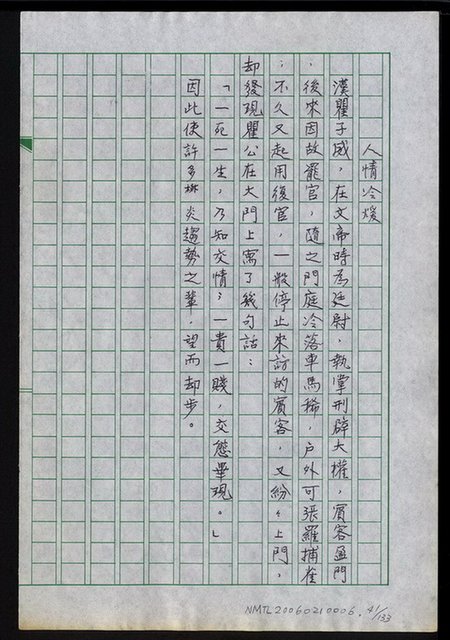 人情冷煖
漢瞿子威，在文帝時為廷尉，執掌刑辟大權，賓客盈門
，後來因故罷官，隨之門庭冷落車馬稀，户外可張羅捕雀
；不久又起用復官，一般停止來訪的賓客，又紛々上門，
却發現瞿公在大門上寫了幾句話：
「一死一生，乃知交情；一貴一賤，交態畢現。」
因此使許多炎趨勢之輩，望而却步。
NMTL20060210006.41/133